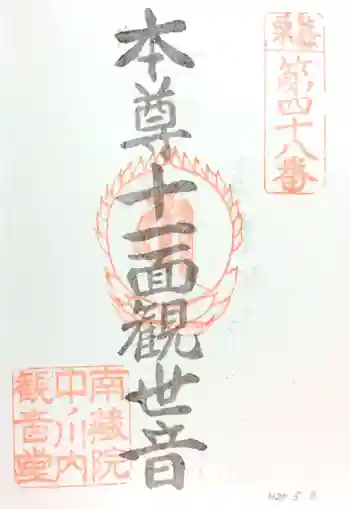 第四十八番
本尊十一面観世音
南蔵院
中ノ川内
観音堂